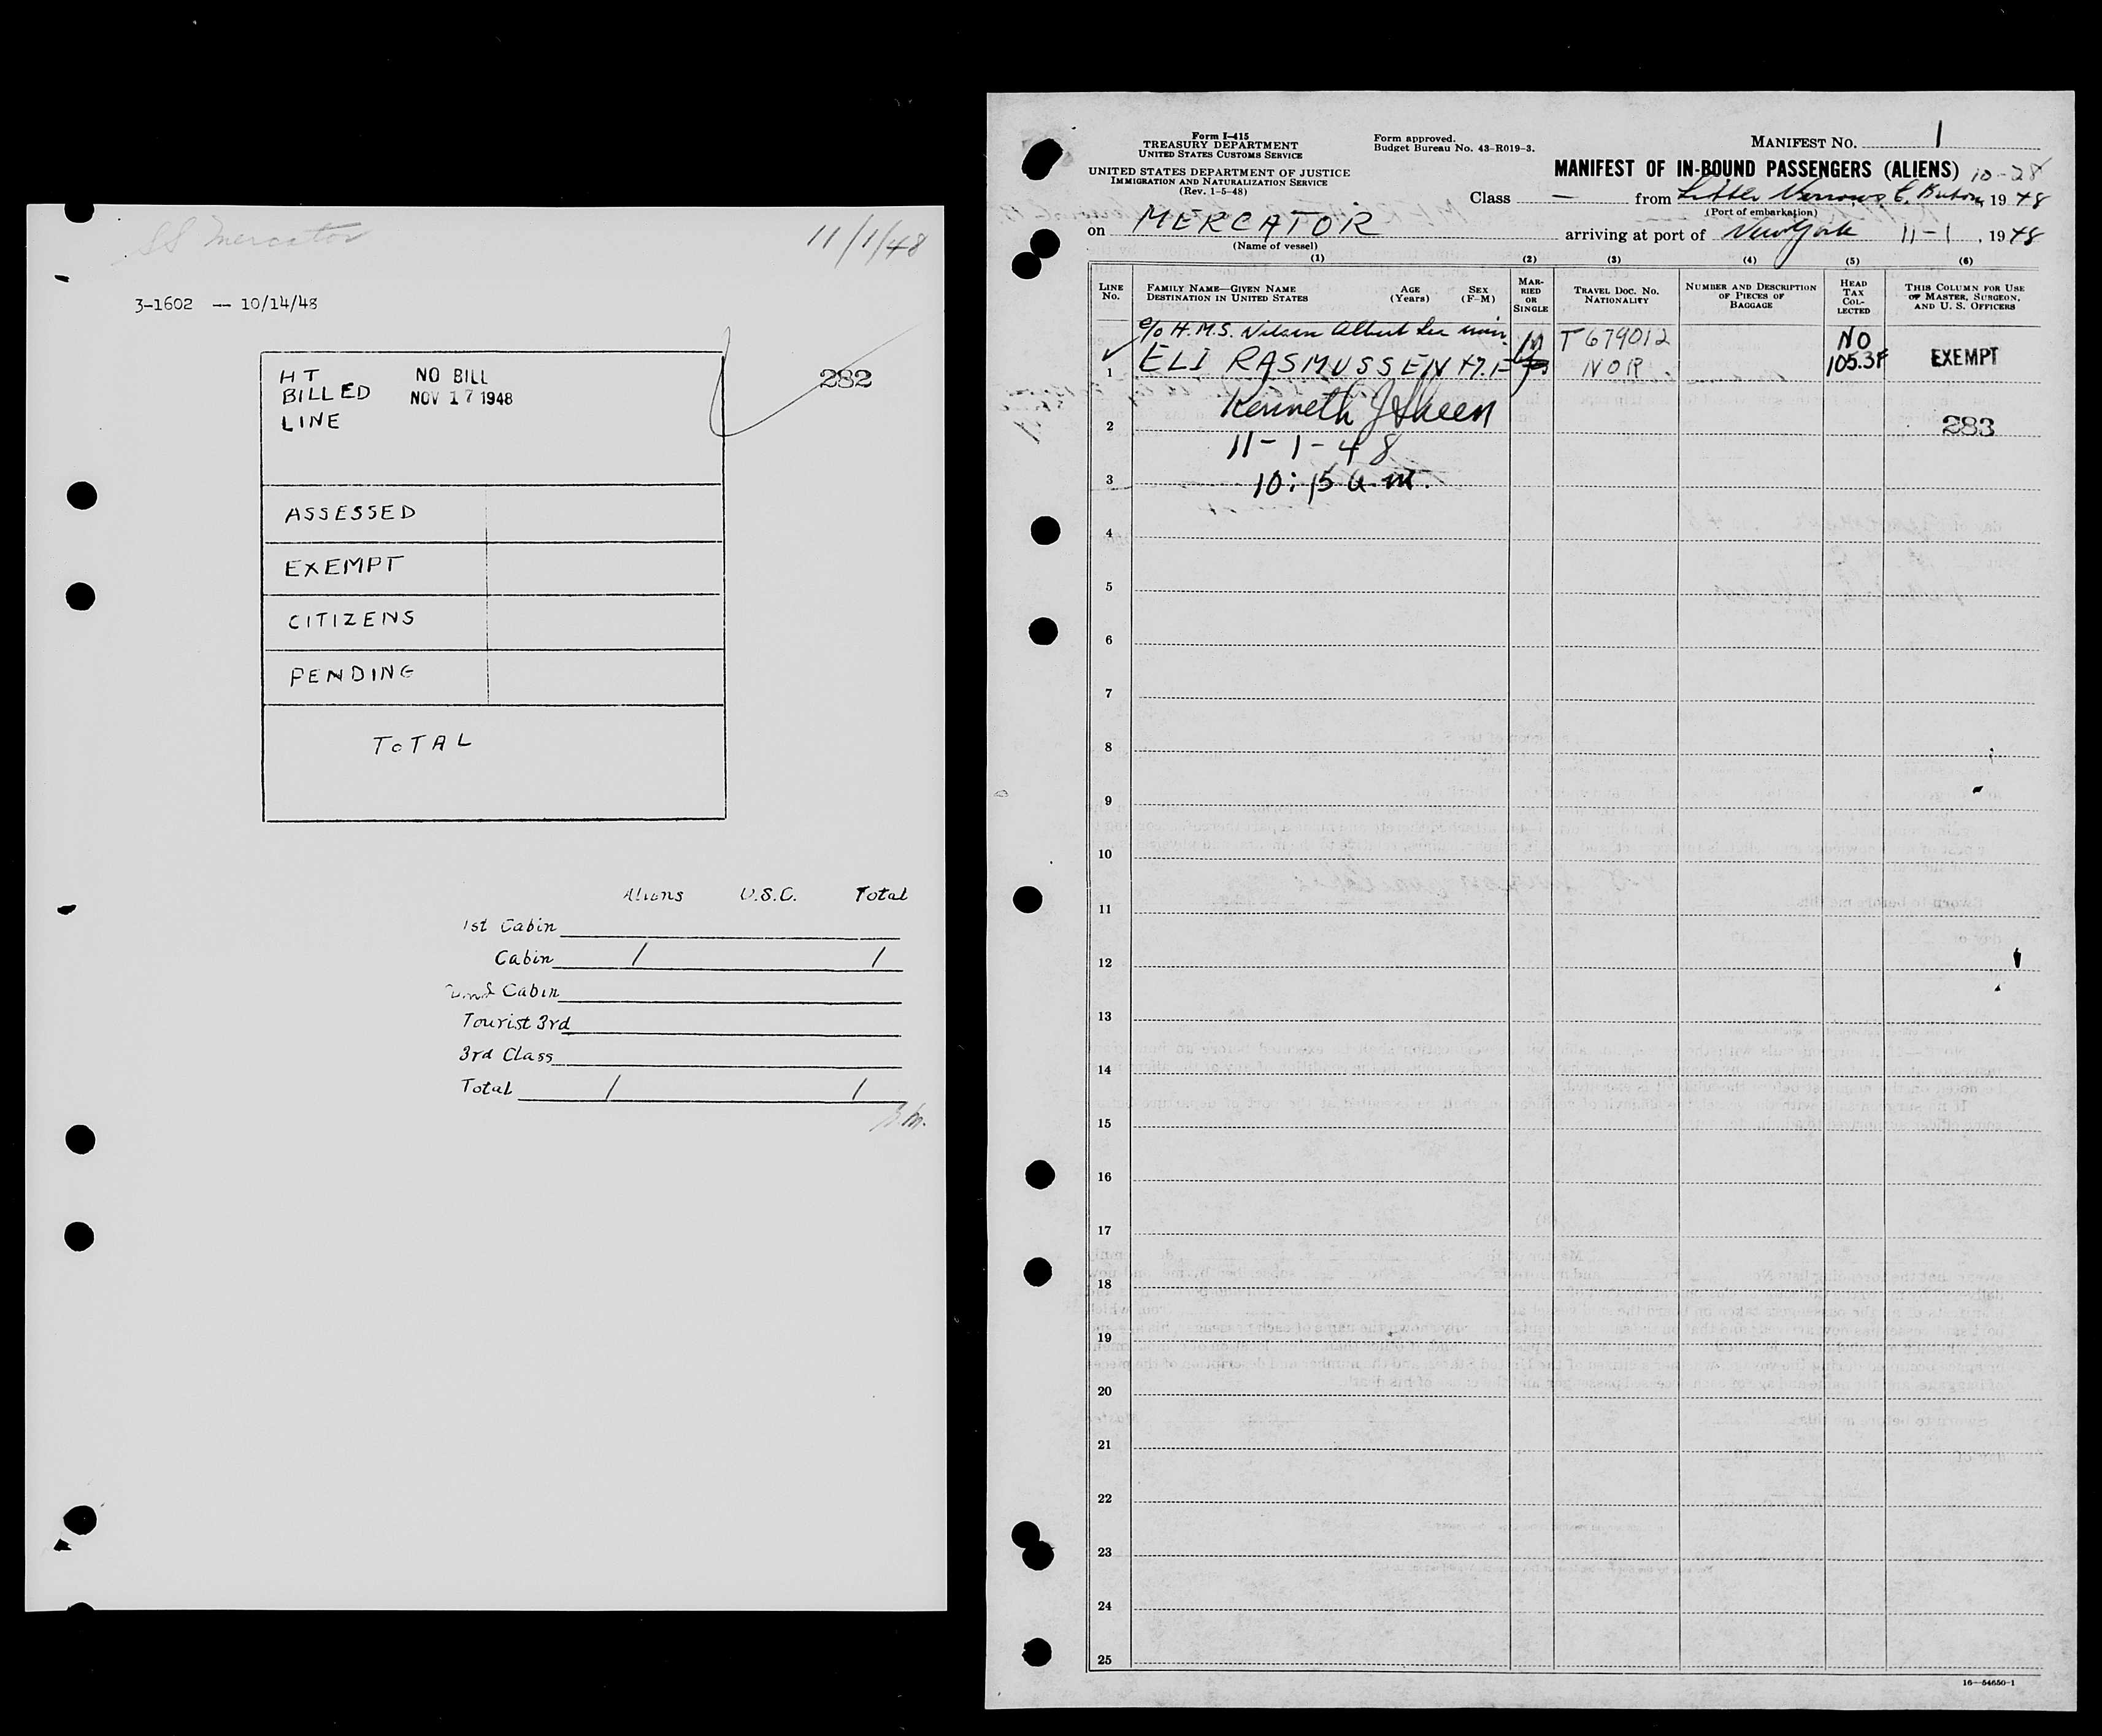 SS Mercator
11/1/48
3-1602 -- 10/14/48
HT NO BILL
BILLED NOV 17 1948
LINE
282
ASSESSED
EXEMPT
CITIZENS
PENDING
TOTAL
Aliens U.S.C. Total
1st Cabin
Cabin 1 1
2nd Cabin
Tourist 3rd
3rd Class
Total 1 1
Form I-415
TREASURY DEPARTMENT
UNITED STATES CUSTOMS SERVICE
UNITED STATES DEPARTMENT OF JUSTICE
IMMIGRATION AND NATURALIZATION SERVICE
(Rev. 1-5-48)
Form approved.
Budget Bureau No. 43-R019-3.
MANIFEST NO. 1
MANIFEST OF IN-BOUND PASSENGERS (ALIENS) 10-28
Class — from Little Narrows C. Breton, 1948
(Port of embarkation)
on MERCATOR arriving at port of New York 11-1, 1948
(Name of vessel)
(1) (2) (3) (4) (5) (6)
LINE No.
FAMILY NAME—GIVEN NAME
DESTINATION IN UNITED STATES
AGE (Years)
SEX (F-M)
MARRIED OR SINGLE
TRAVEL DOC. NO.
NATIONALITY
NUMBER AND DESCRIPTION OF PIECES OF BAGGAGE
HEAD TAX COLLECTED
THIS COLUMN FOR USE OF MASTER, SURGEON, AND U. S. OFFICERS
c/o H.M.S. Nilsen Albert Lee Minn. M T679012 NO
1 ELI RASMUSSEN 47 F NOR. 105.3F EXEMPT
Kenneth
2 283
11-1-48
3 10:15 a.m.
4
5
6
7
8
9
10
11
12
13
14
15
16
17
18
19
20
21
22
23
24
25
16—54650-1